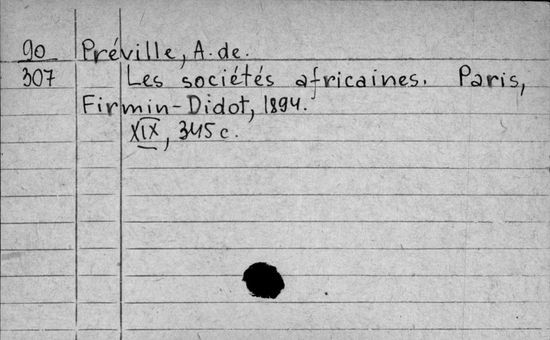 90 Préville, A. de.
307 Les sociétés africaines. Paris,
Firmin-Didot, 1894.
XIX, 345 c.